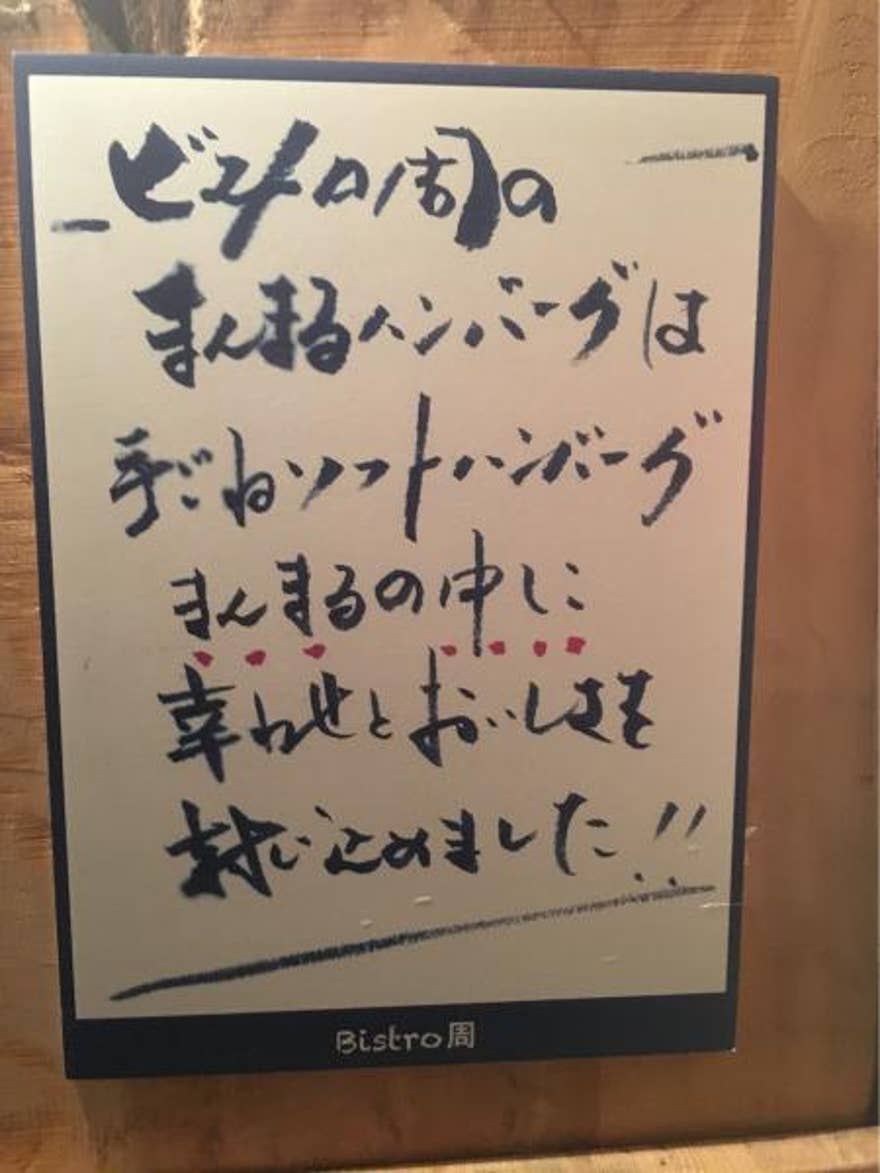 ビストロ周の
まんまるハンバーグは
手ごねソフトハンバーグ
まんまるの中に
幸わせとおいしさを
封じ込めました!!
Bistro周